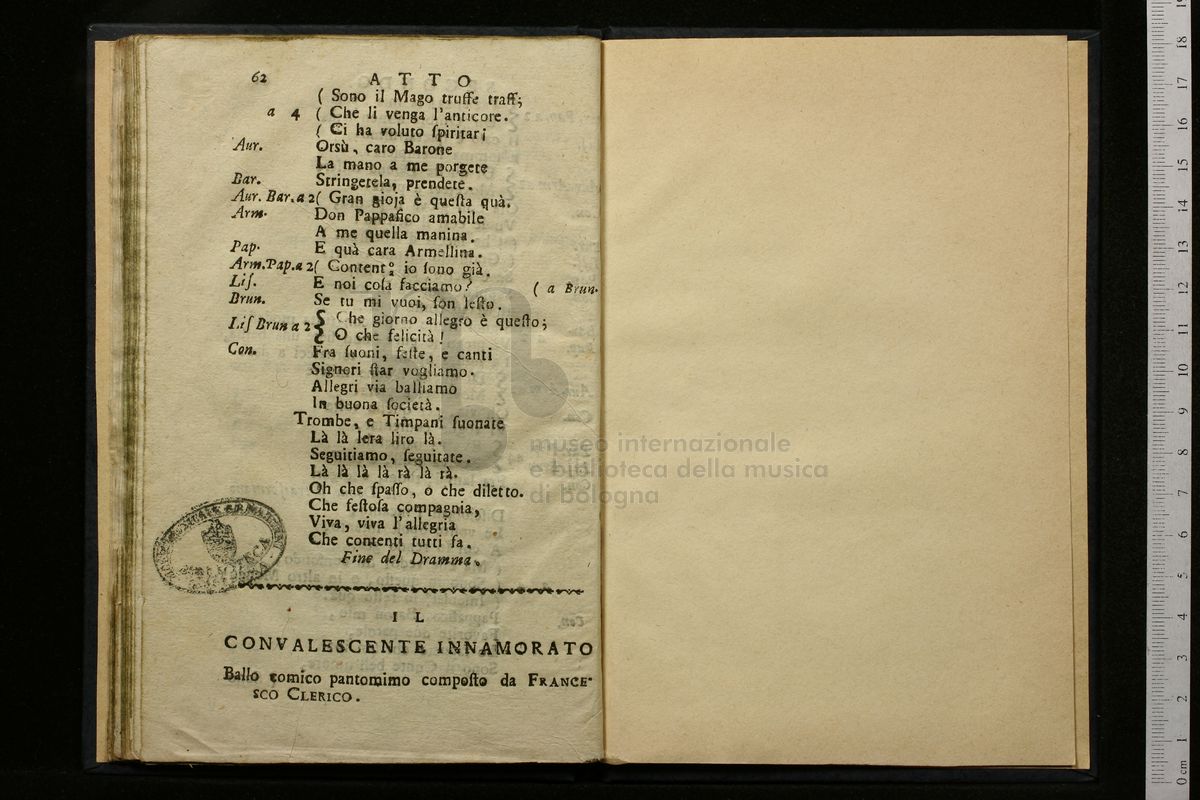 62 ATTO
( Sono il Mago truffe traff;
a 4 ( Che li venga l'anticore.
( Ci ha voluto ſpiritar;
Aur. Orsù, caro Barone
La mano a me porgete
Bar. Stringetela, prendete.
Aur. Bar. a 2 ( Gran gioja è queſta quà.
Arm. Don Pappafico amabile
A me quella manina.
Pap. E quà cara Armellina.
Arm. Pap. a 2 ( Content a/o io ſono già.
Liſ. E noi coſa facciamo? ( a Brun.
Brun. Se tu mi vuoi, ſon leſto.
Liſ Brun a 2 { Che giorno allegro è queſto;
O che felicità!
Con. Fra ſuoni, feſte, e canti
Signori ſtar vogliamo.
Allegri via balliamo
In buona ſocietà.
Trombe, e Timpani ſuonate
Là là lera liro là.
Seguitiamo, ſeguitate.
Là là là là rà là rà.
Oh che ſpaſſo, o che diletto.
Che feſtoſa compagnia,
Viva, viva l'allegria
Che contenti tutti fa.
Fine del Dramma.
IL
CONVALESCENTE INNAMORATO
Ballo comico pantomimo compoſto da FRANCE-
SCO CLERICO.
museo internazionale
e biblioteca della musica
di bologna